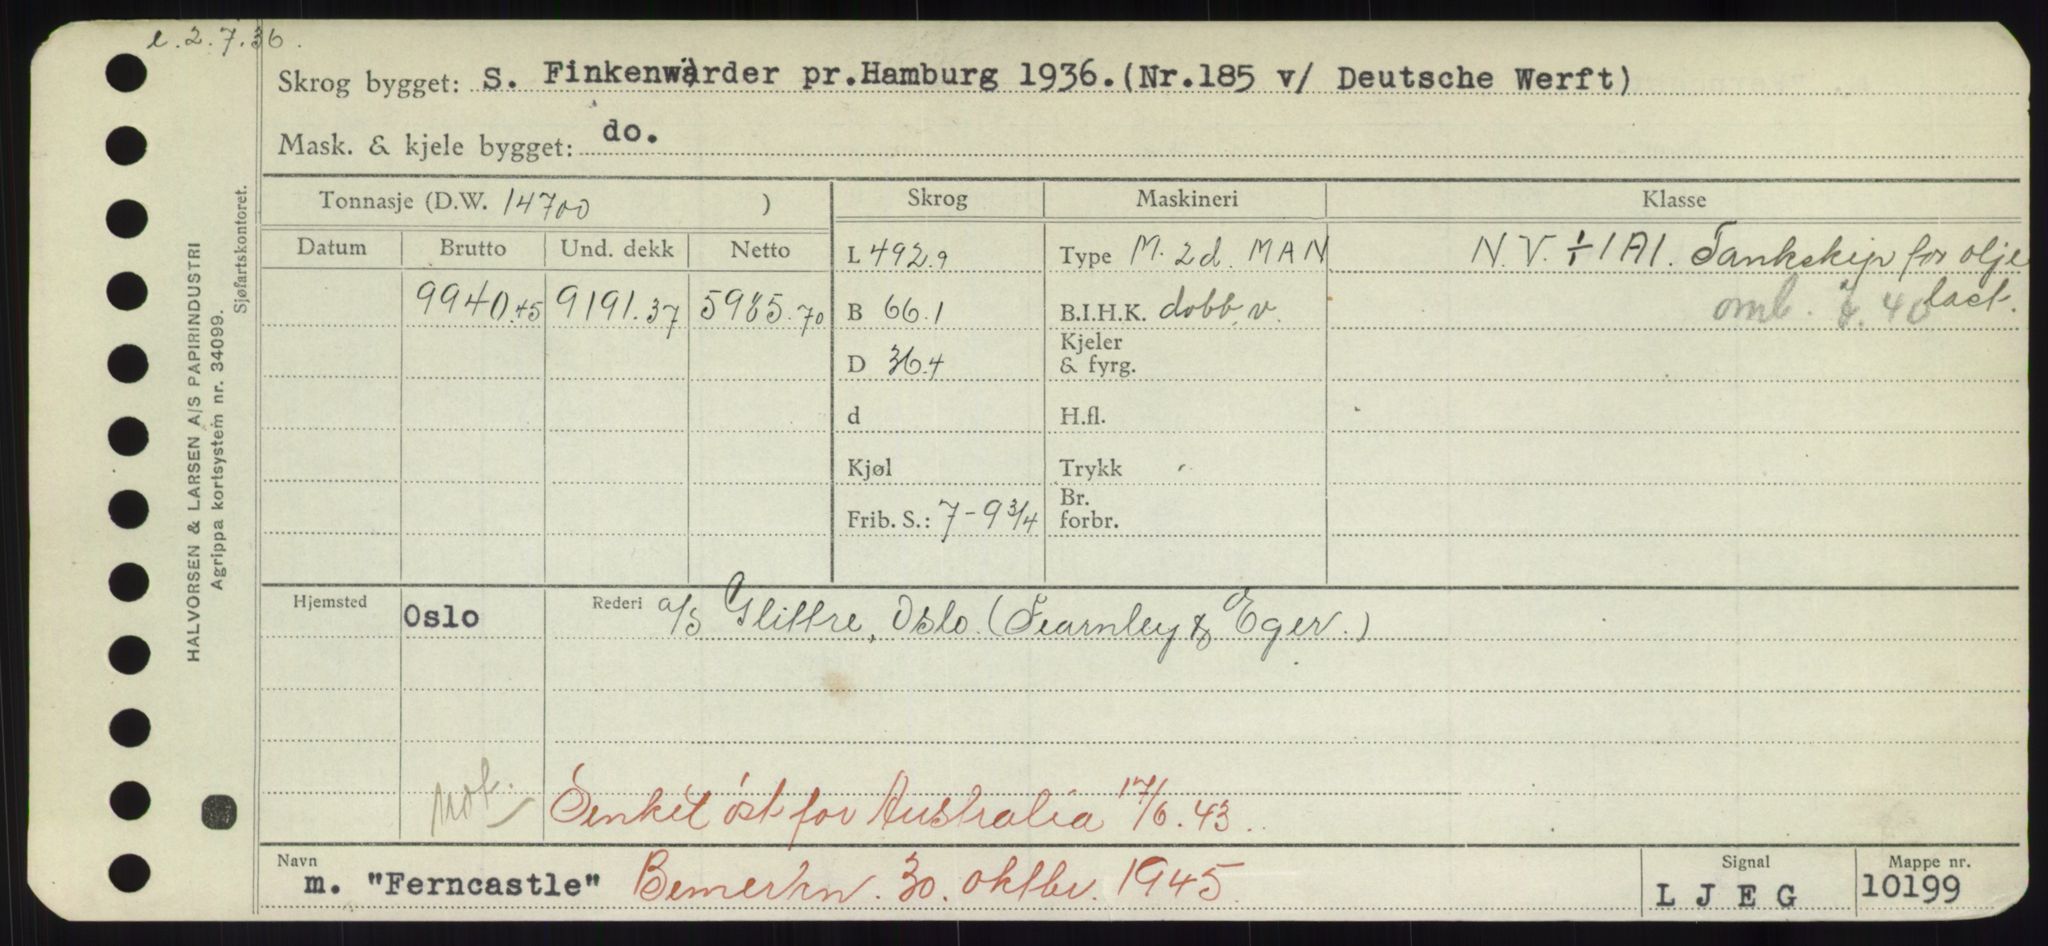 e. 2.7.36.
Skrog bygget: S. Finkenwärder pr.Hamburg 1936.(Nr.185 v/ Deutsche Werft)
Mask. & kjele bygget: do.
Tonnasje (D.W. 14700 )
Skrog
Maskineri
Klasse
Datum Brutto Und. dekk Netto
L 492.9
Type M. 2d. MAN
N.V. ⁒ 1A1. Tankskip for olje
last.
9940.45 9191.37 5985.70
B 66.1
B.I.H.K. dobb. v.
omb. 40
D 36.4
Kjeler
& fyrg.
d
H.fl.
Kjøl
Trykk
Frib. S.: 7-9 3/4
Br.
forbr.
Hjemsted Oslo Rederi a/s Glittre, Oslo. (Fearnley & Eger.)
not.
Senket øst for Australia 17/6.43.
Navn m. "Ferncastle" Bemerkn. 30. oktbr. 1945.
Signal L J E G
Mappe nr. 10199
HALVORSEN & LARSEN A/S PAPIRINDUSTRI
Agrippa kortsystem nr. 34099.
Sjøfartskontoret.